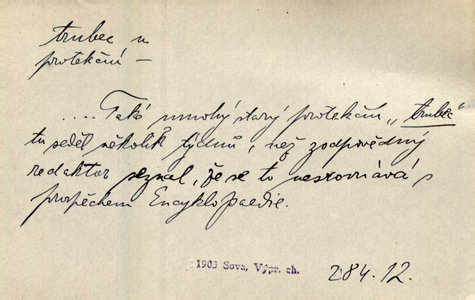 trubec u
protekční —
.... Také mnohý starý protekční „trubec"
tu seděl několik týdnů, než zodpovědný
redaktor seznal, že se to nesrovnává s
prospěchem Encyklopaedie.
1903 Sova, Výpr. ch.
284.12.